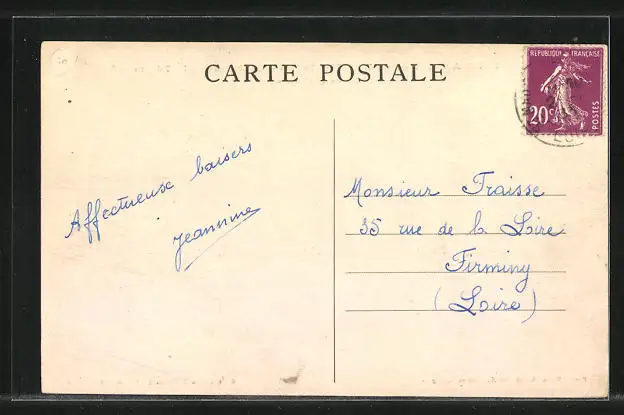 CARTE POSTALE
REPUBLIQUE FRANÇAISE
20c
POSTES
Affectueux baisers
Jeannine
Monsieur Fraisse
35 rue de la Loire
Firminy
(Loire)